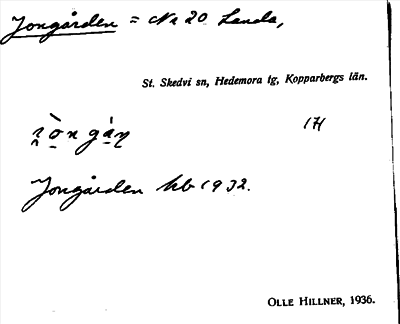 Jongården = Nr 20 Landa,
St. Skedvi sn, Hedemora tg, Kopparbergs län.
1H
Jongården kb 1932.
OLLE HILLNER, 1936.